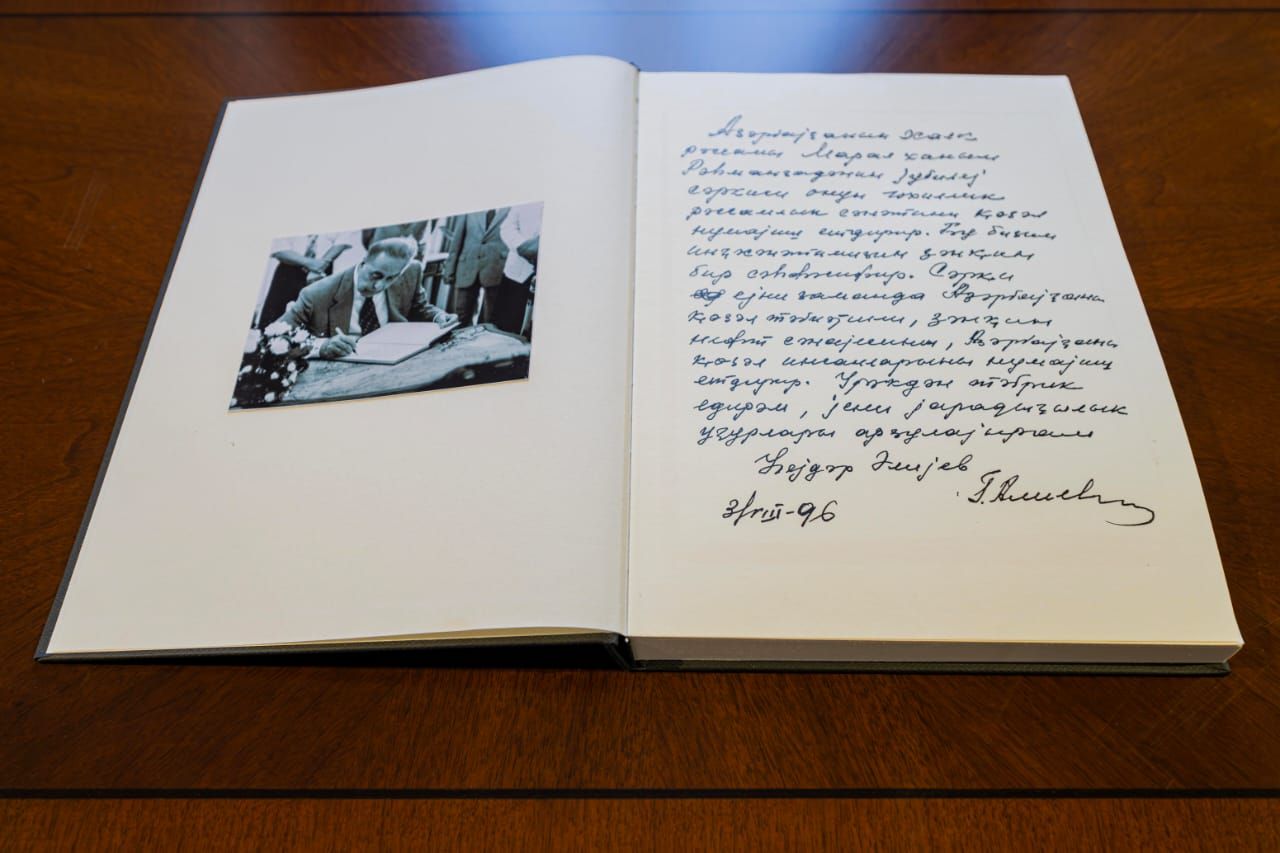 Азәрбајҹанын халг
рәссамы Марал ханым
Рәһманзадәнин јубилеј
сәркиси онун чохиллик
рәссамлыг сәнәтини ҝөзәл
нүмајиш етдирир. Бу бизим
инҹәсәнәтимизин зәнҝин
бир сәһифәсидир. Сәрҝи
ејни заманда Азәрбајҹанын
ҝөзәл тәбиәтини, зәнҝин
нефт сәнајесини, Азәрбајҹанын
ҝөзәл инсанларыны нүмајиш
етдирир. Үрәкдән тәбрик
едирәм, јени јарадыҹылыг
уғурлары арзулајырам
Һејдәр Әлијев
Г. Алиев
3/VIII-96